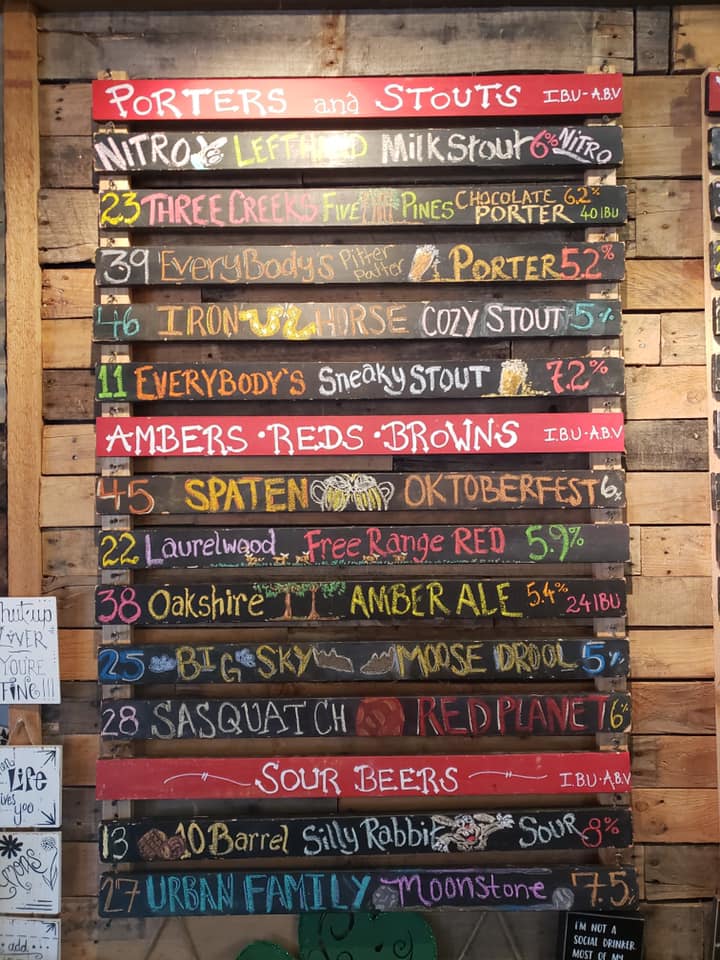 PORTERS and STOUTS I.B.U-A.B.V
NITRO LEFTHAND Milk Stout 6% NITRO
23 THREE CREEKS FIVE PINES CHOCOLATE PORTER 6.2% 40 IBU
39 EveryBody's Pitter Patter PORTER 5.2%
46 IRON HORSE COZY STOUT 5%
11 EVERYBODY'S Sneaky STOUT 7.2%
AMBERS • REDS • BROWNS I.B.U-A.B.V
45 SPATEN OKTOBERFEST 6%
22 Laurelwood Free Range RED 5.9%
38 Oakshire AMBER ALE 5.4% 24 IBU
25 BIG SKY MOOSE DROOL 5%
28 SASQUATCH RED PLANET 6%
SOUR BEERS I.B.U-A.B.V
13 10 Barrel Silly Rabbit SOUR 8%
27 URBAN FAMILY Moonstone 7.5
hut up
LIVER
YOU'RE
FINE!!!
Life
ives
you
mons
add
I'M NOT A
SOCIAL DRINKER.
MOST OF MY